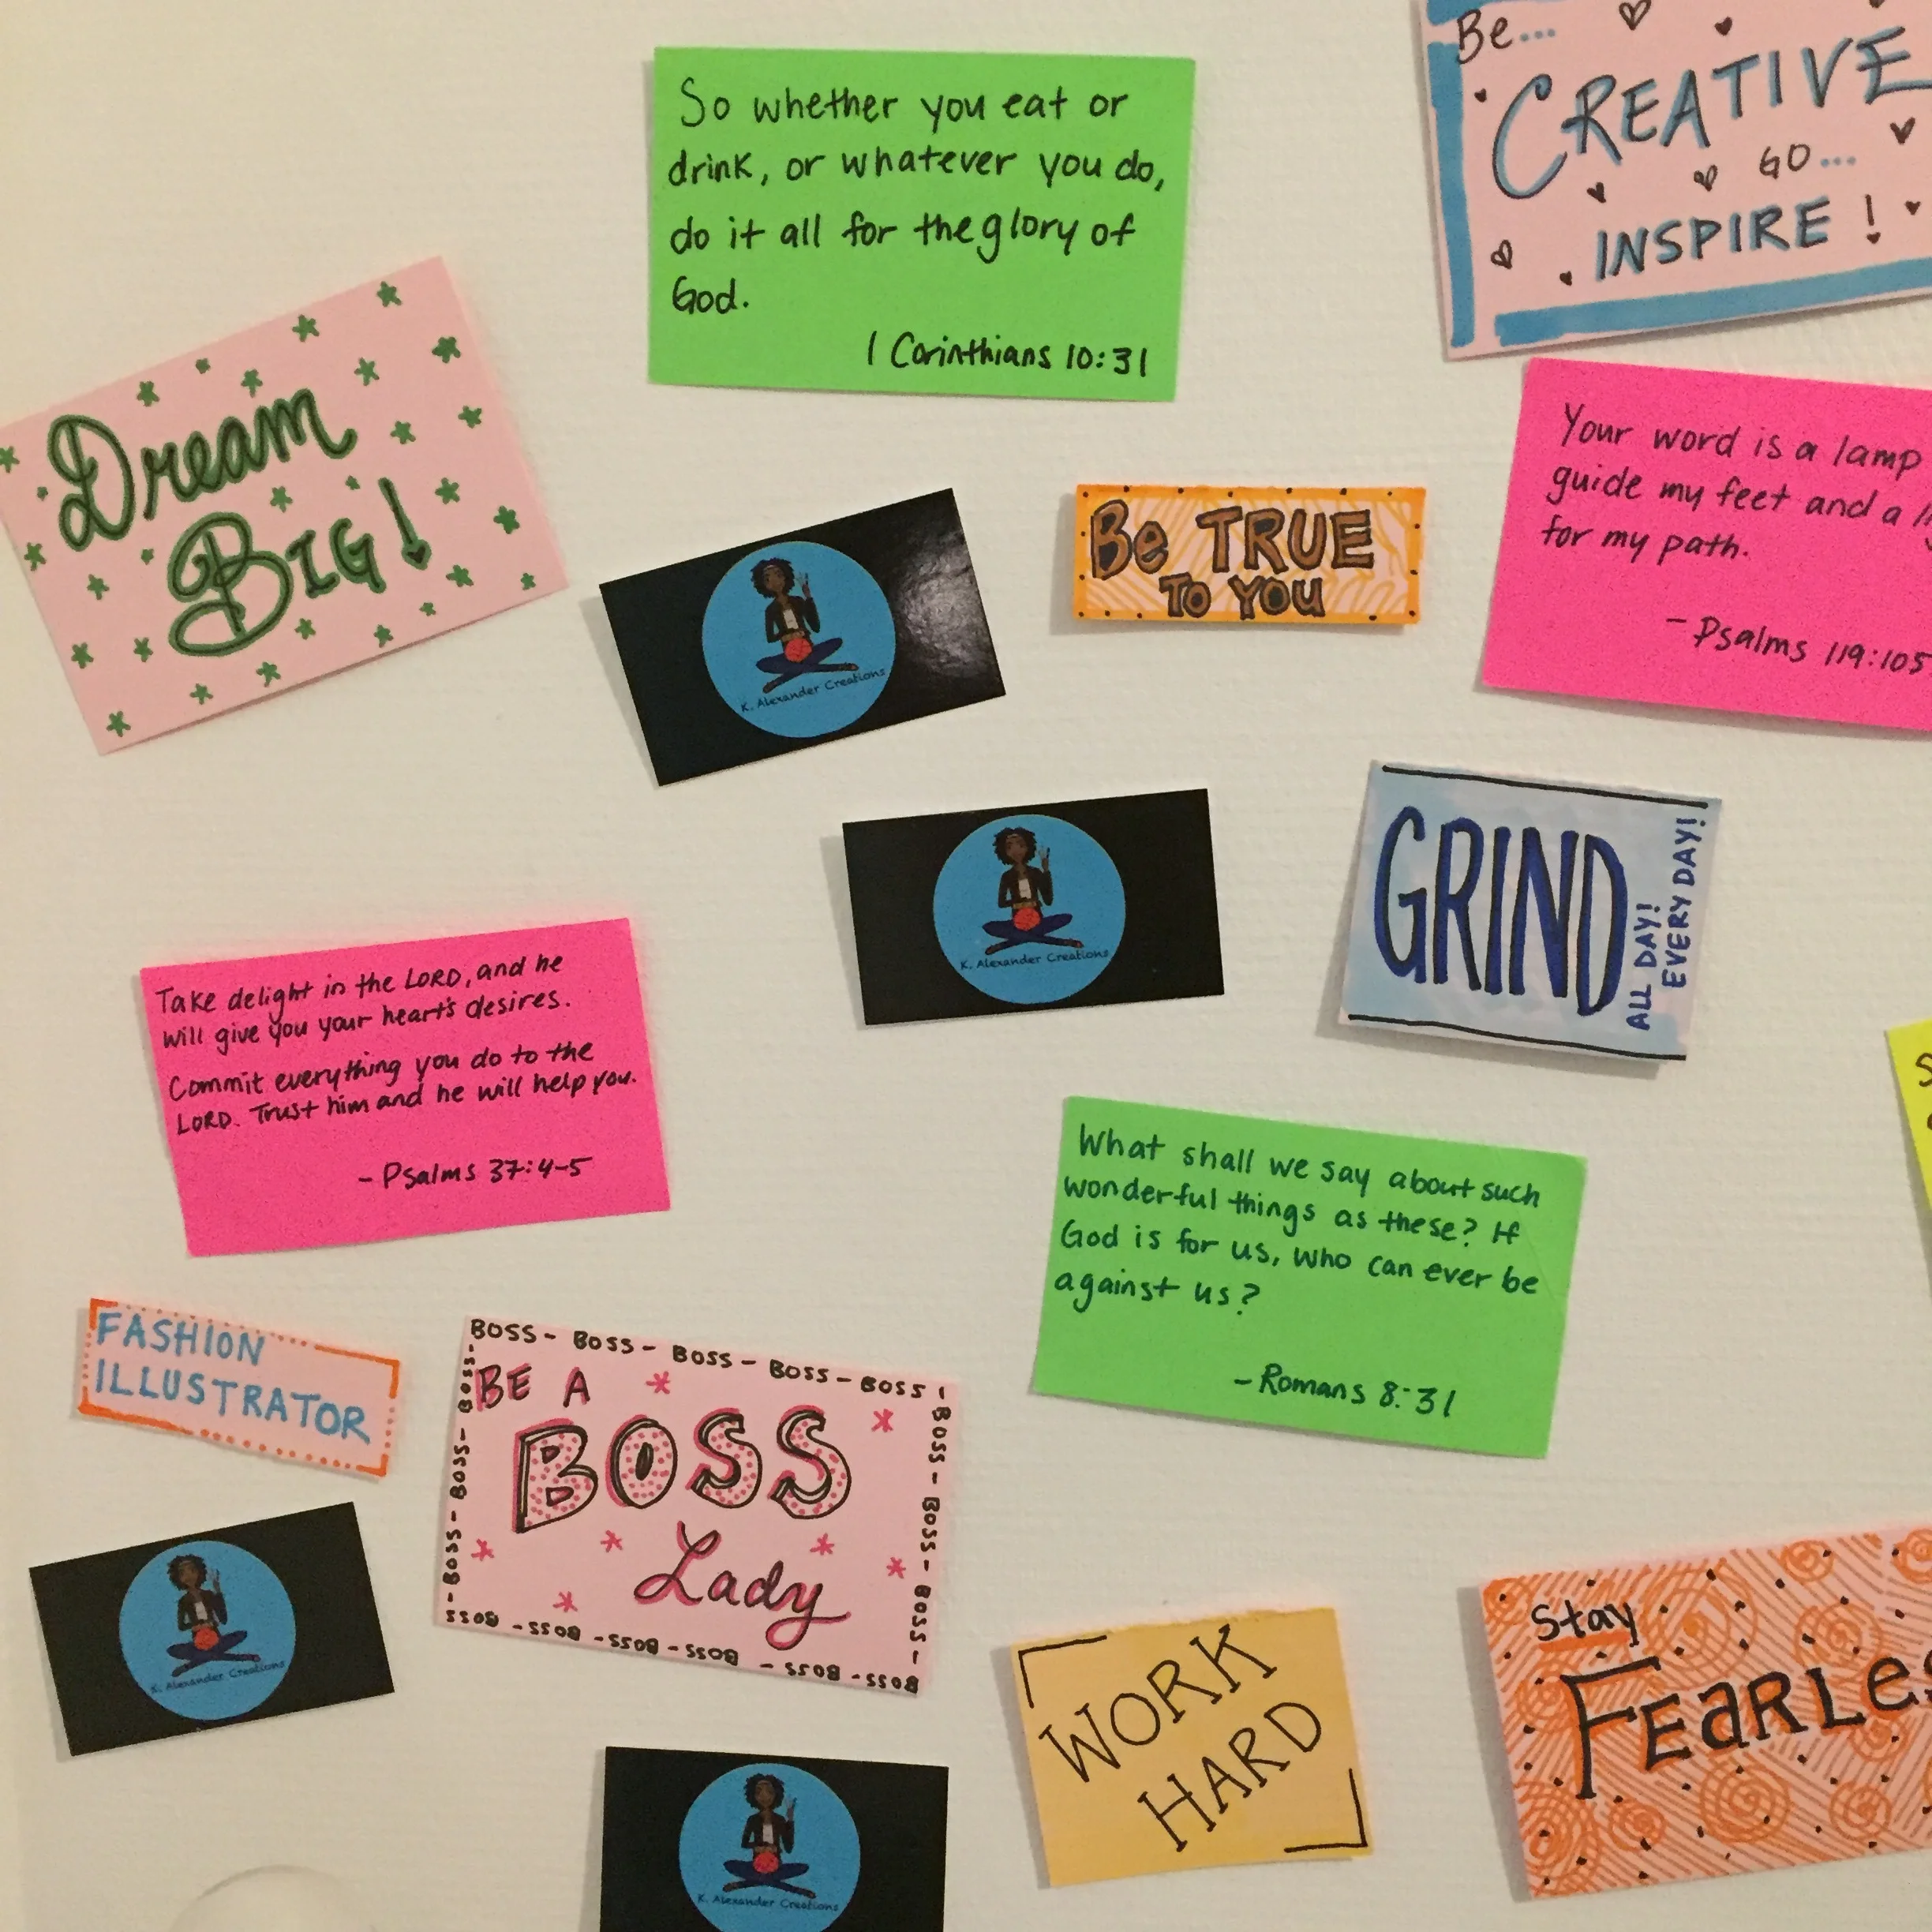 So whether you eat or
drink, or whatever you do,
do it all for the glory of
God.
1 Corinthians 10:31
Be...
CREATIVE
GO...
INSPIRE!
Dream
BIG!
K. Alexander Creations
Be TRUE
TO YOU
Your word is a lamp
guide my feet and a
for my path.
- Psalms 119:105
K. Alexander Creations
GRIND
ALL DAY!
EVERY DAY!
Take delight in the LORD, and he
will give you your heart's desires.
Commit everything you do to the
LORD. Trust him and he will help you.
- Psalms 37:4-5
What shall we say about such
wonderful things as these? If
God is for us, who can ever be
against us?
- Romans 8:31
FASHION
ILLUSTRATOR
BOSS - BOSS - BOSS - BOSS - BOSS -
BOSS - BOSS - BOSS -
BOSS - BOSS - BOSS - BOSS - BOSS - BOSS
- BOSS - BOSS - BOSS -
BE A
BOSS
Lady
K. Alexander Creations
WORK
HARD
Stay
K. Alexander Creations